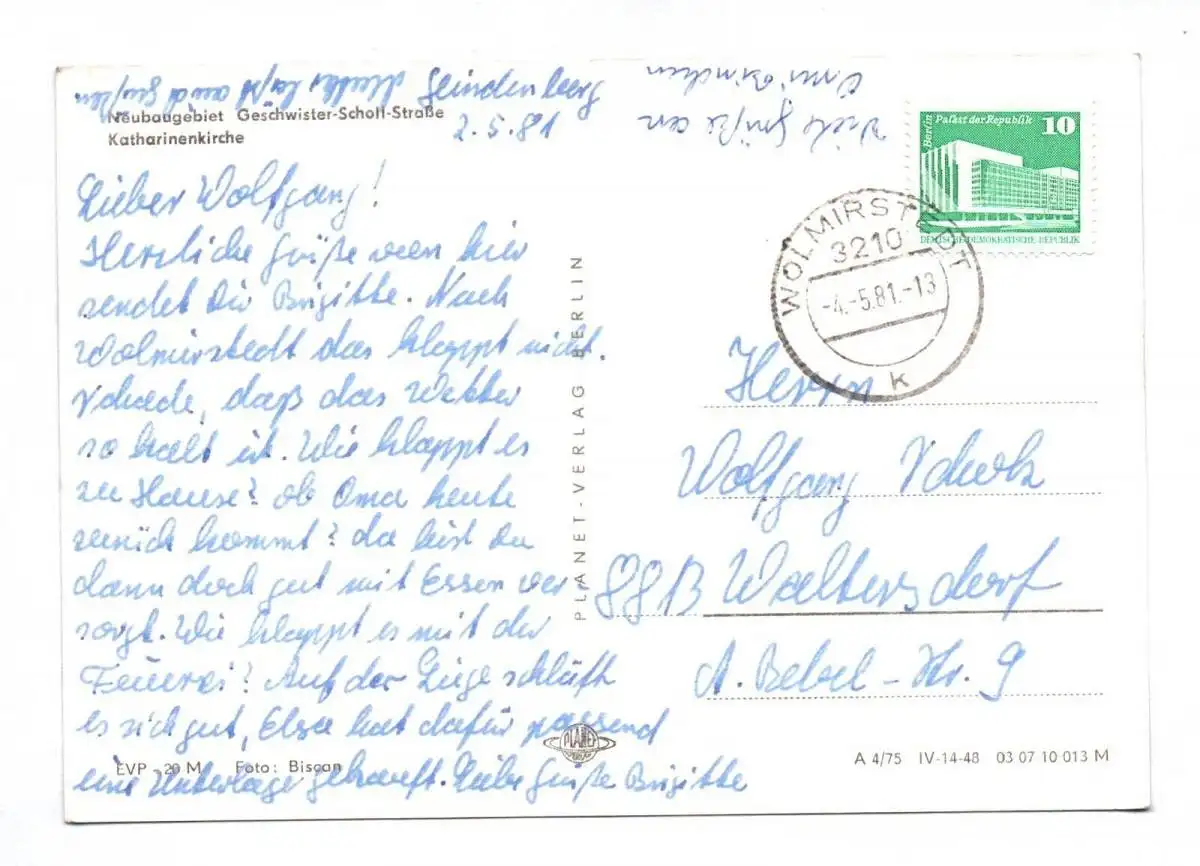 Neubaugebiet Geschwister-Scholl-Straße
Katharinenkirche
2.5.81
Lieber Wolfgang!
Herzliche Grüße von hier
sendet Dir Brigitte. Nach
Wolmirstedt das klappt nicht.
Schade, daß das Wetter
so kalt ist. Wie klappt es
zu Hause? ob Oma heute
zurück kommt? da bist Du
dann doch gut mit Essen ver
sorgt. Wie klappt es mit der
Feuerei? Auf der Liege schläft
es sich gut, Elsa hat dafür passend
eine Unterlage gekauft. Liebe Grüße Brigitte
Mutter läßt auch grüßen
Viele Grüße an
Omi
EVP -20 M Foto: Biscan
PLANET-VERLAG BERLIN
PLANET
Berlin Palast der Republik 10
DEUTSCHE DEMOKRATISCHE REPUBLIK
WOLMIRSTEDT
3210
-4.-5.81.-13
k
Herrn
Wolfgang Scholz
8813 Waltersdorf
A. Bebel-Str. 9
A 4/75 IV-14-48 03 07 10 013 M